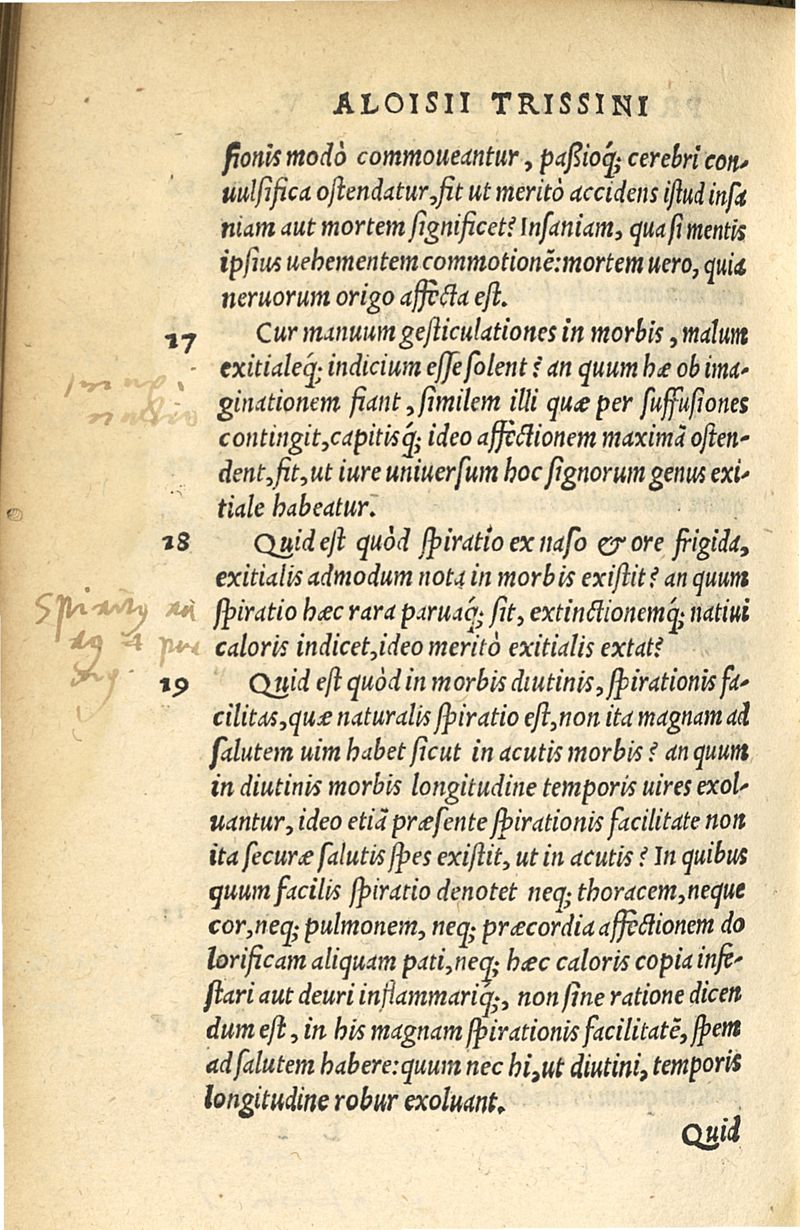 ALOISII TRISSINI
sionis modò commoueantur, paßioq́; cerebri con-
uulsifica ostendatur, fit ut meritò accidens istud insa
niam aut mortem significet? Insaniam, quasi mentis
ipsius uehementem commotionẽ: mortem uero, quia
neruorum origo affecta est.
17 Cur manuum gesticulationes in morbis, malum
exitialeq́; indicium esse solent? an quum hæ ob ima-
ginationem fiant, similem illi quæ per suffusiones
contingit, capitisq́; ideo affectionem maximã osten-
dent, fit, ut iure uniuersum hoc signorum genus exi-
tiale habeatur.
18 Quid est quòd spiratio ex naso & ore frigida,
exitialis admodum nota in morbis existit? an quum
spiratio hæc rara paruaq́; sit, extinctionemq́; natiui
caloris indicet, ideo meritò exitialis extat?
19 Quid est quòd in morbis diutinis, spirationis fa-
cilitas, quæ naturalis spiratio est, non ita magnam ad
salutem uim habet sicut in acutis morbis? an quum
in diutinis morbis longitudine temporis uires exol-
uantur, ideo etiã præsente spirationis facilitate non
ita securæ salutis spes existit, ut in acutis? In quibus
quum facilis spiratio denotet neq; thoracem, neque
cor, neq; pulmonem, neq; præcordia affectionem do
lorificam aliquam pati, neq; hæc caloris copia infe-
stari aut deuri inflammariq́;, non sine ratione dicen
dum est, in his magnam spirationis facilitatẽ, spem
ad salutem habere: quum nec hi, ut diutini, temporis
longitudine robur exoluant.
Quid